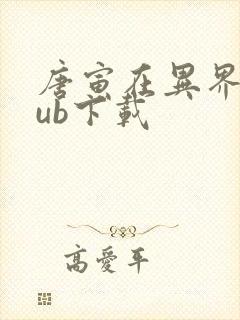 唐寅在異界
ub下載
高愛平